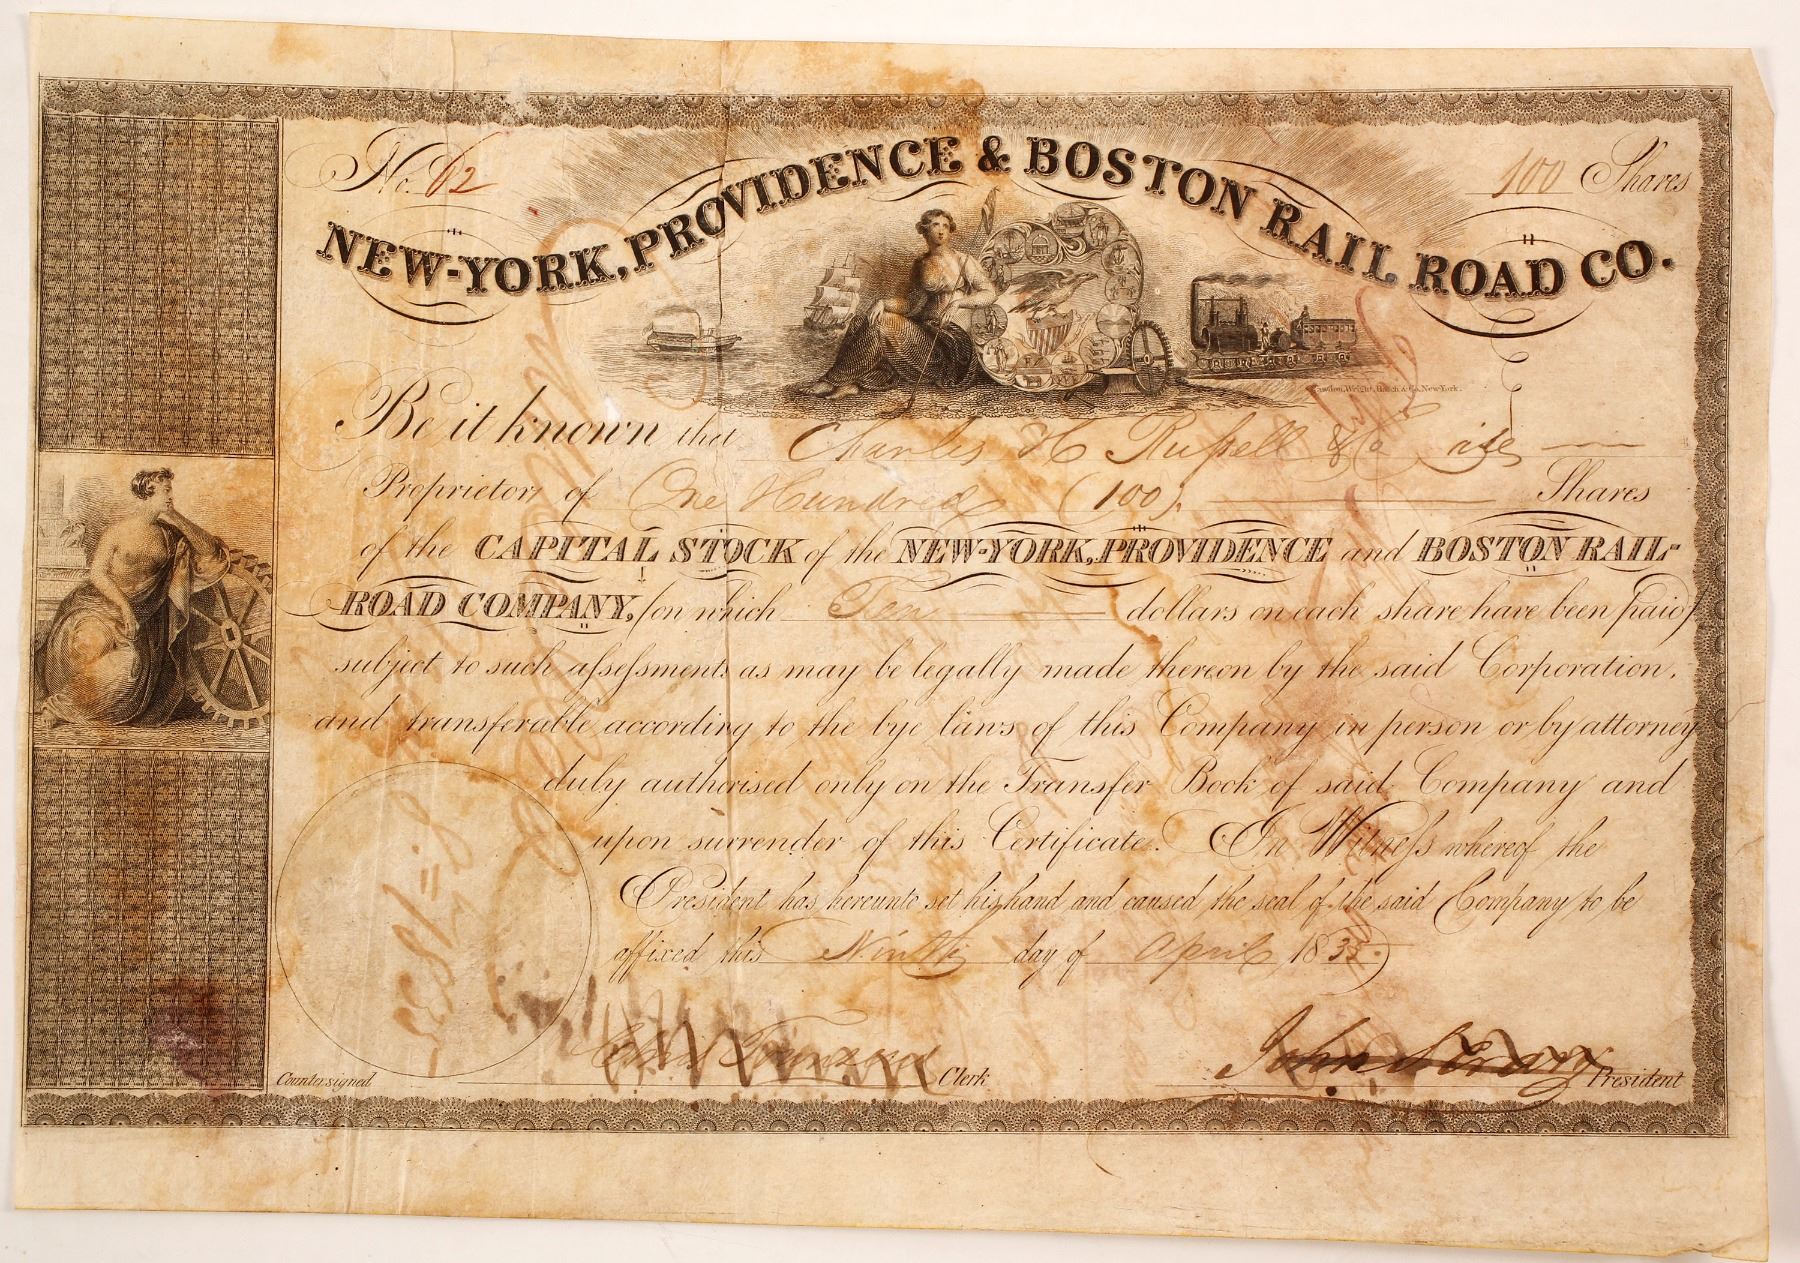 No. 62
100 Shares
NEW-YORK, PROVIDENCE & BOSTON RAIL ROAD CO.
Rawdon, Wright, Hatch & Co. New-York.
Be it known that Charles H Rufsell & Co is
Proprietor, of One Hundred (100) Shares
of the CAPITAL STOCK of the NEW-YORK, PROVIDENCE and BOSTON RAIL-
ROAD COMPANY, on which Ten dollars on each share have been paid
subject to such afsefsments as may be legally made thereon by the said Corporation,
and transferable according to the bye laws of this Company in person or by attorney
duly authorised only on the Transfer Book of said Company and
upon surrender of this Certificate. In Witnefs whereof the
President has hereunto set his hand and caused the seal of the said Company to be
affixed this Ninth day of April 1835.
Countersigned Clerk
John S Crary President